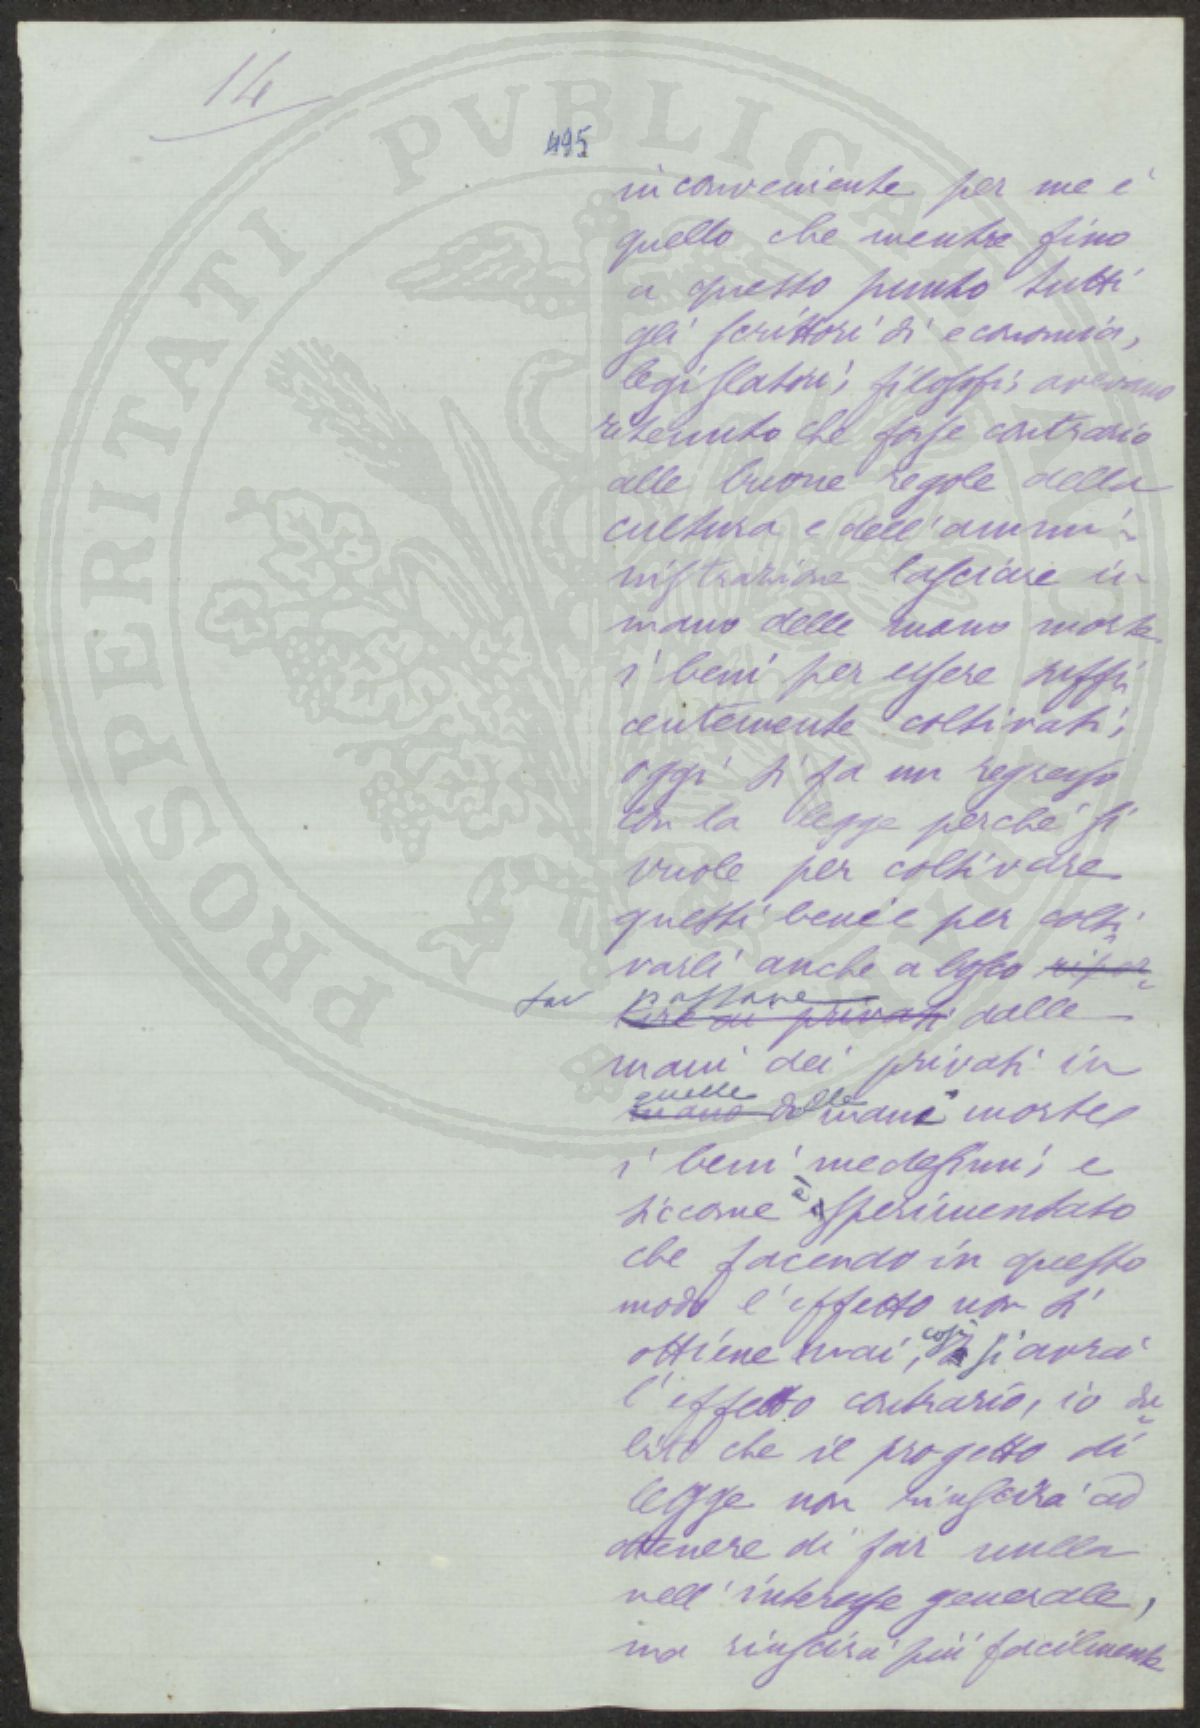 14
495
inconveniente per me è
quello che mentre fino
a questo punto tutti
gli scrittori di economia,
legislatori, filosofi, avevano
ritenuto che fosse contrario
alle buone regole della
cultura e dell'ammi-
nistrazione lasciare in
mano delle mano morte
i beni per essere suffi
centemente coltivati,
oggi si fa un regresso
con la legge perché si
vuole per coltivare
questi beni e per colti-
varli anche a lotto ripor-
far passare
tire ai privati dalle
mani dei privati in
quelle
mano delle mani morte
i beni medesimi, e
siccome è sperimentato
che facendo in questo
modo l'effetto non si
ottiene mai, così si avrà
l'effetto contrario, io du-
bito che il progetto di
legge non riuscirà ad
ottenere di far nulla
nell'interesse generale,
ma riuscirà più facilmente
PROSPERITATI PVBLICAE